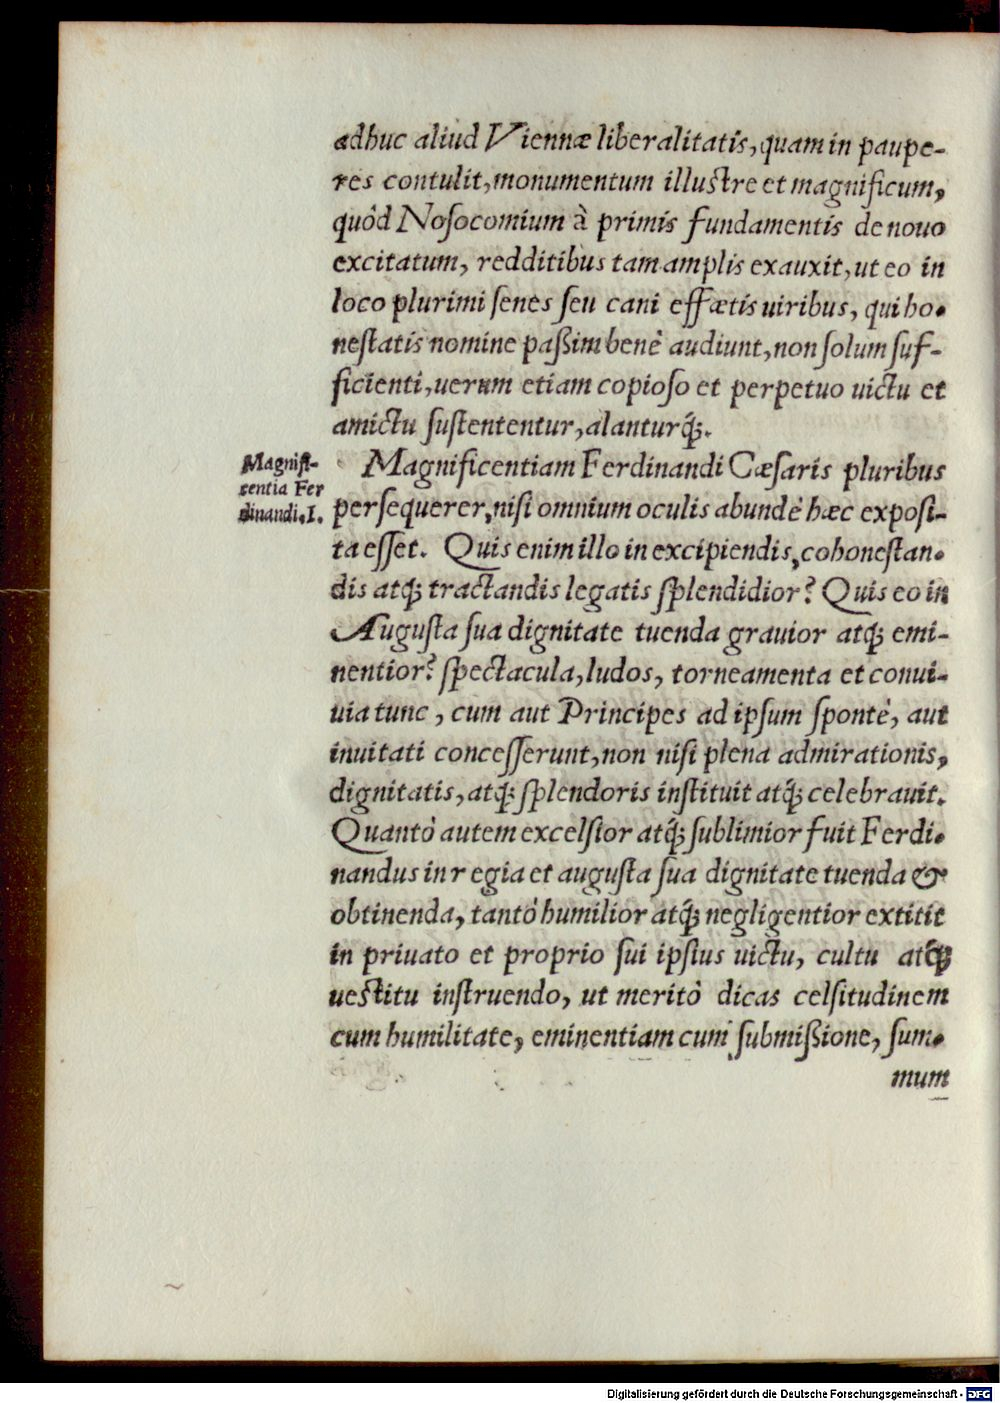 adhuc aliud Viennæ liberalitatis, quam in paupe-
res contulit, monumentum illustre et magnificum,
quòd Nosocomium à primis fundamentis de nouo
excitatum, redditibus tam amplis exauxit, ut eo in
loco plurimi senes seu cani effœtis uiribus, qui ho-
nestatis nomine paßim benè audiunt, non solum suf-
ficienti, uerum etiam copioso et perpetuo uictu et
amictu sustententur, alanturq́;.
Magnifi-
centia Fer
dinandi. I.
Magnificentiam Ferdinandi Cæsaris pluribus
persequerer, nisi omnium oculis abundè hæc exposi-
ta esset. Quis enim illo in excipiendis, cohonestan-
dis atq́; tractandis legatis splendidior? Quis eo in
Augusta sua dignitate tuenda grauior atq́; emi-
nentior? spectacula, ludos, torneamenta et conui-
uia tunc, cum aut Principes ad ipsum spontè, aut
inuitati concesserunt, non nisi plena admirationis,
dignitatis, atq́; splendoris instituit atq́; celebrauit.
Quantò autem excelsior atq́; sublimior fuit Ferdi-
nandus in regia et augusta sua dignitate tuenda &
obtinenda, tantò humilior atq́; negligentior extitit
in priuato et proprio sui ipsius uictu, cultu atq́;
uestitu instruendo, ut meritò dicas celsitudinem
cum humilitate, eminentiam cum submißione, sum-
mum
Digitalisierung gefördert durch die Deutsche Forschungsgemeinschaft - DFG